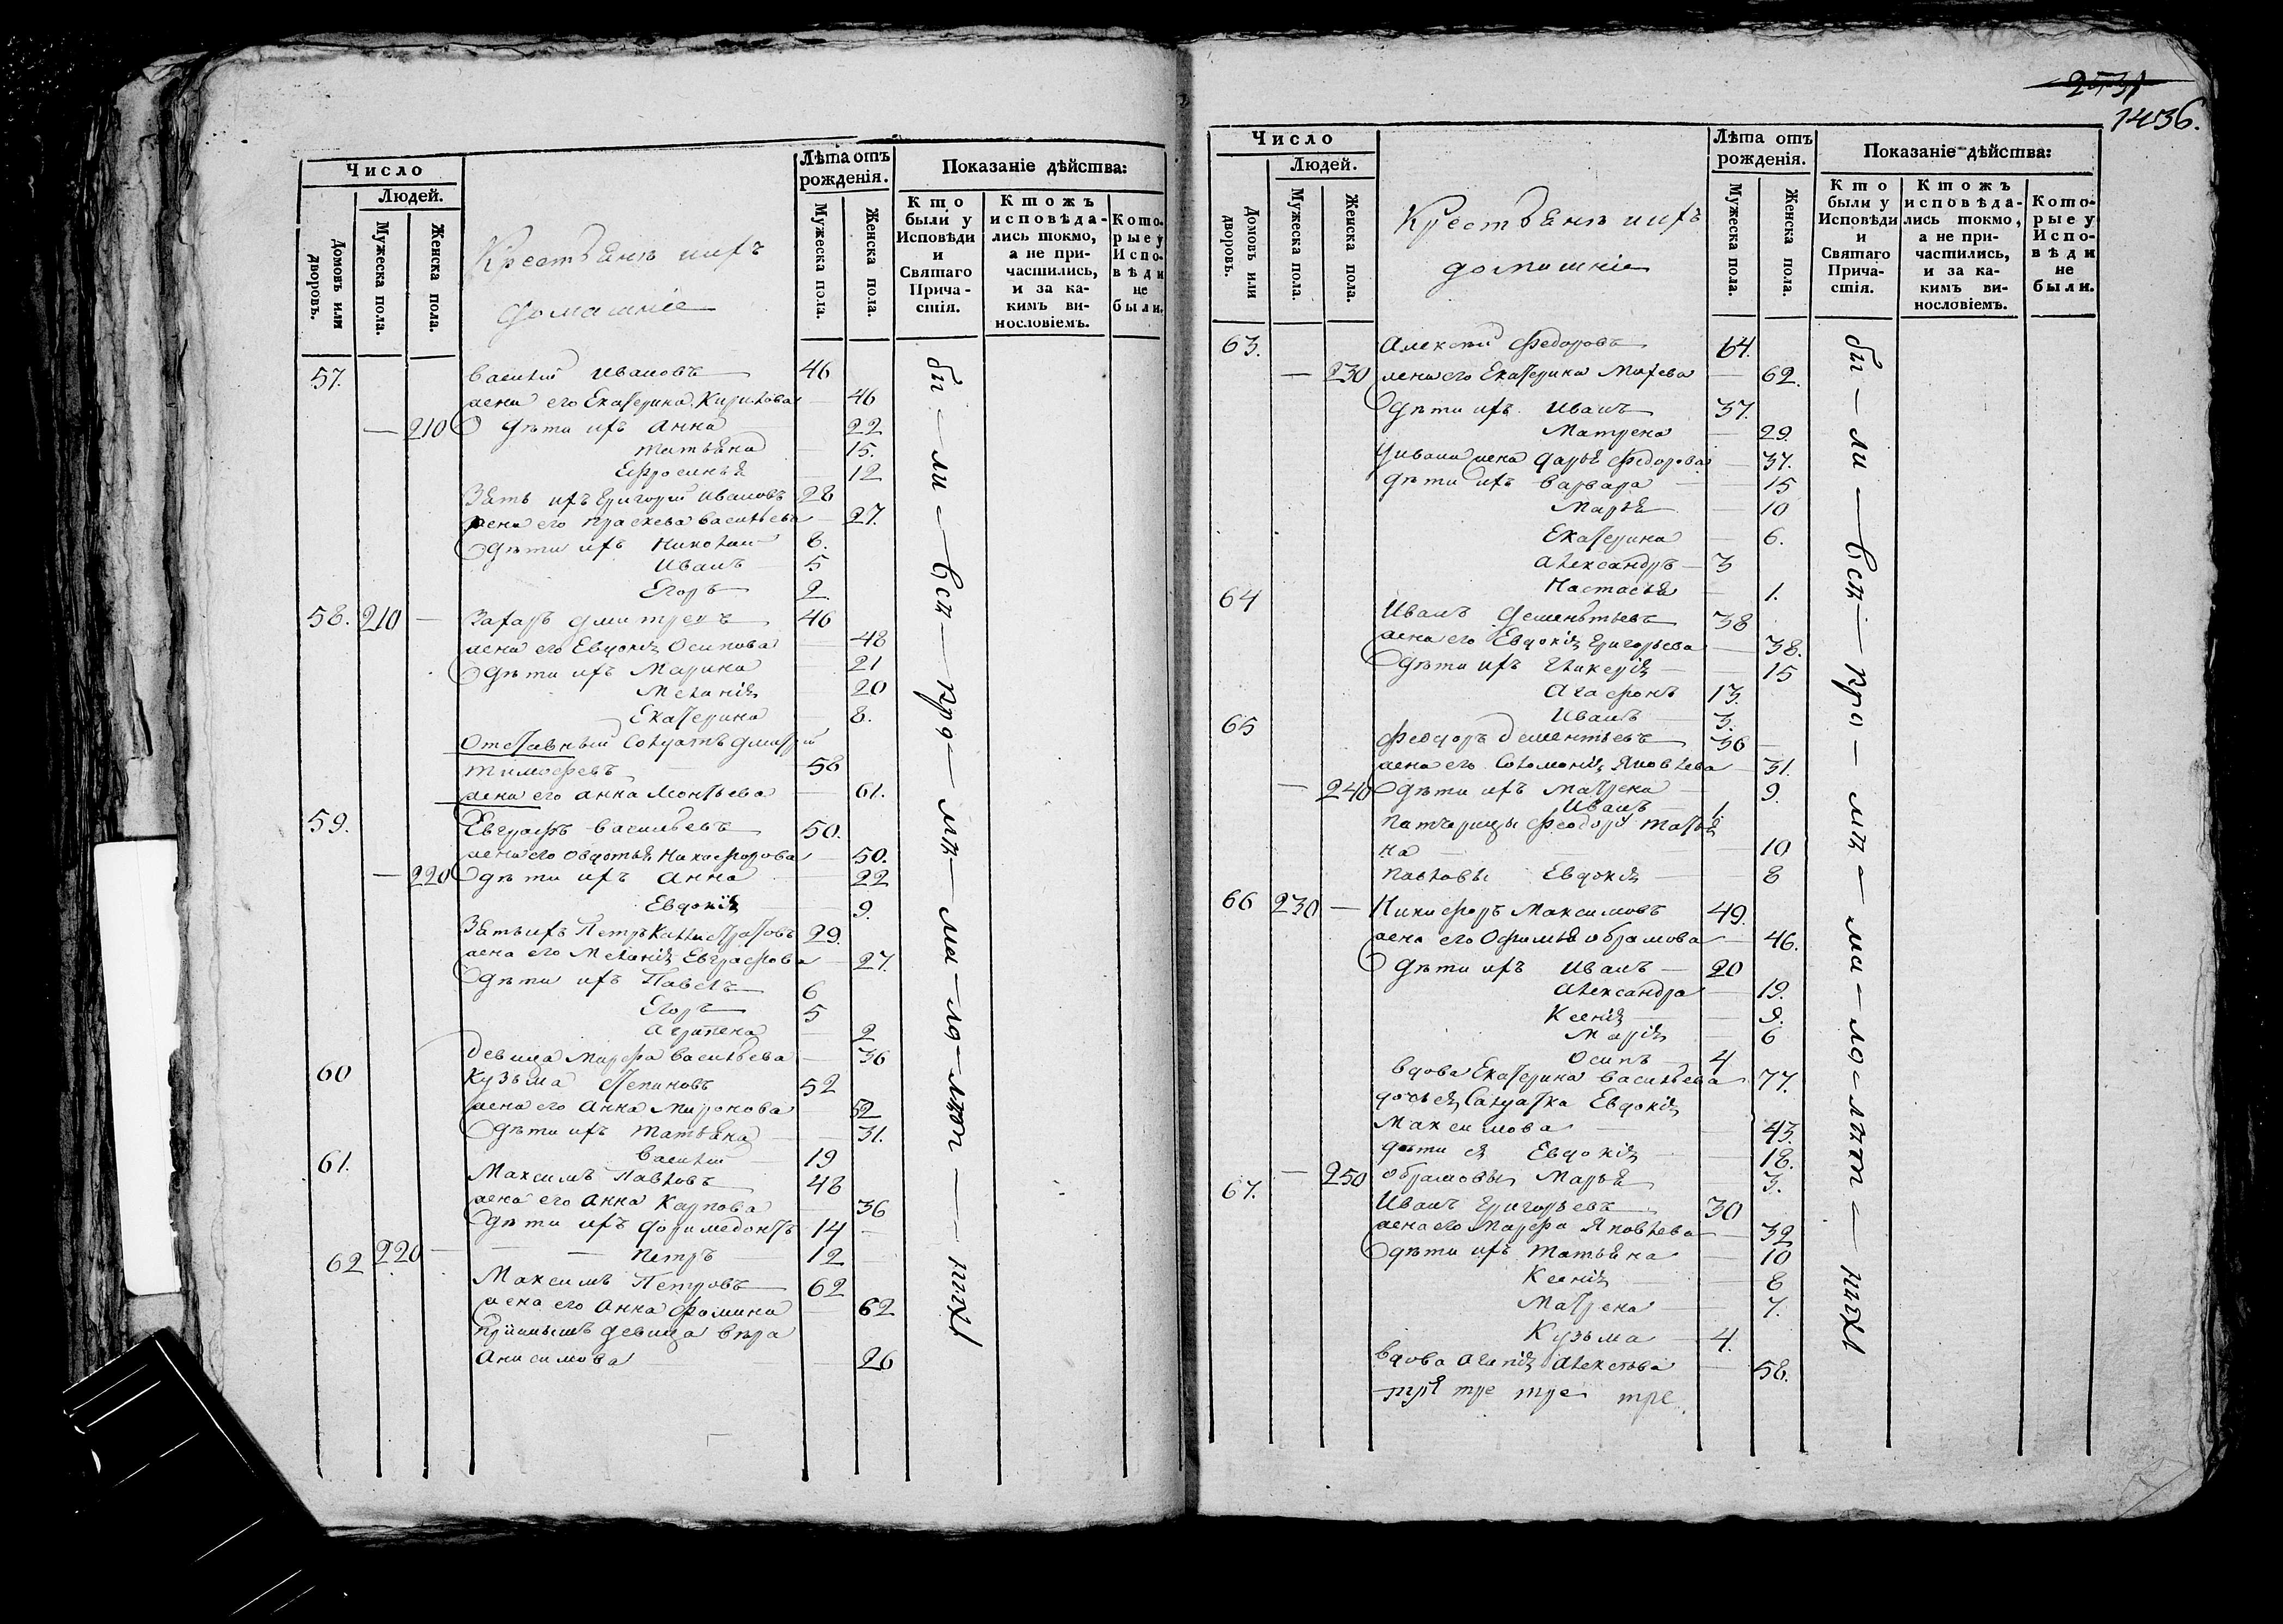 Число
Людей.
Домовъ или дворовъ.
Мужеска пола.
Женска пола.
Крестьянѣ ихъ
домашніе
Лѣта отъ рожденія.
Мужеска пола.
Женска пола.
Показаніе дѣйства:
Кто были у Исповѣди и Святаго Причастія.
Ктожъ исповѣдались токмо, а не причастились, и за какимъ винословіемъ.
Которые у Исповѣди не были.
57. Василій Ивановъ 46
жена его Екатерина Кирилова — 46
— 210 Дѣти ихъ Анна 22
Татьяна — 15.
Ефросинья — 12
Зять ихъ Григорій Ивановъ 28
жена его Праскева Васильева — 27.
Дѣти ихъ Николай 8.
Иванъ 5
Егоръ 2
58. 210 — Захаръ Дмитревъ 46
жена его Евдокія Осипова — 48
Дѣти ихъ Марина — 21
Меланія — 20
Екатерина — 8.
Отставный Солдатъ Дмитрій
Тимофеевъ 58
жена его Анна Леонтьева — 61.
59. Евграфъ Васильевъ 50.
жена его Овдотья Никифорова — 50.
— 220 Дѣти ихъ Анна — 22
Евдокія — 9.
Зять ихъ Петръ Калистратовъ 29.
жена его Меланія Евграфова — 27.
Дѣти ихъ Павелъ 6
Егоръ 5
Аграпена — 2
Девица Марфа Васильева — 36
60 Кузьма Степановъ 52
жена его Анна Миронова 52
Дѣти ихъ Татьяна — 31.
Василій 19
61. Максимъ Павловъ 48
жена его Анна Карпова 36
Дѣти ихъ Доримедонтъ 14 —
62 220 — — Петръ 12
Максимъ Петровъ 62
жена его Анна Фомина 62
Пріимышъ девица Вѣра
Анисимова 26
бы — ли — всѣ — про — мѣ — ма — ло — лѣт — — ныхъ
2531
1436.
Число
Людей.
Домовъ или дворовъ.
Мужеска пола.
Женска пола.
Крестьянѣ ихъ
домашніе
Лѣта отъ рожденія.
Мужеска пола.
Женска пола.
Показаніе дѣйства:
Кто были у Исповѣди и Святаго Причастія.
Ктожъ исповѣдались токмо, а не причастились, и за какимъ винословіемъ.
Которые у Исповѣди не были.
63. Алексѣй Федоровъ 64.
— 230 жена его Екатерина Михева — 62.
Дѣти ихъ Иванъ 37.
Матрена — 29.
У Ивана жена Дарья Федорова — 37.
Дѣти ихъ Варвара — 15
Марья — 10
Екатерина — 6.
Александръ 3
Настасья — 1.
64 Иванъ Дементьевъ 38
жена его Евдокія Григорьева — 38.
Дѣти ихъ Гликерія — 15
Агафонъ 13.
Иванъ 3.
65 Феодоръ Дементьевъ 36 —
жена его Соломонія Яковлева 31.
— 240 Дѣти ихъ Матрена — 9.
Иванъ 1.
Патчерицы Феодору Татья
на — 10
Павловы Евдокія — 8
66 230 — Никифоръ Максимовъ 49.
жена его Офимья Обрамова — 46.
Дѣти ихъ Иванъ 20
Александра — 19.
Ксенія — 9.
Марія — 6
Осипъ 4
Вдова Екатерина Васильева 77.
дочь ея Салдатка Евдокія
Максимова — 43.
дѣти ея Евдокія — 18.
— 250 Обрамовы Марья — 3.
67. Иванъ Григорьевъ 30
жена его Марфа Яковлева — 32
Дѣти ихъ Татьяна — 10
Ксенія — 8
Матрена — 7.
Кузьма 4.
Вдова Агапія Алексѣева — 58.
тре тре тре
бы — ли — всѣ — про — мѣ — ма — ло — лѣт — ныхъ